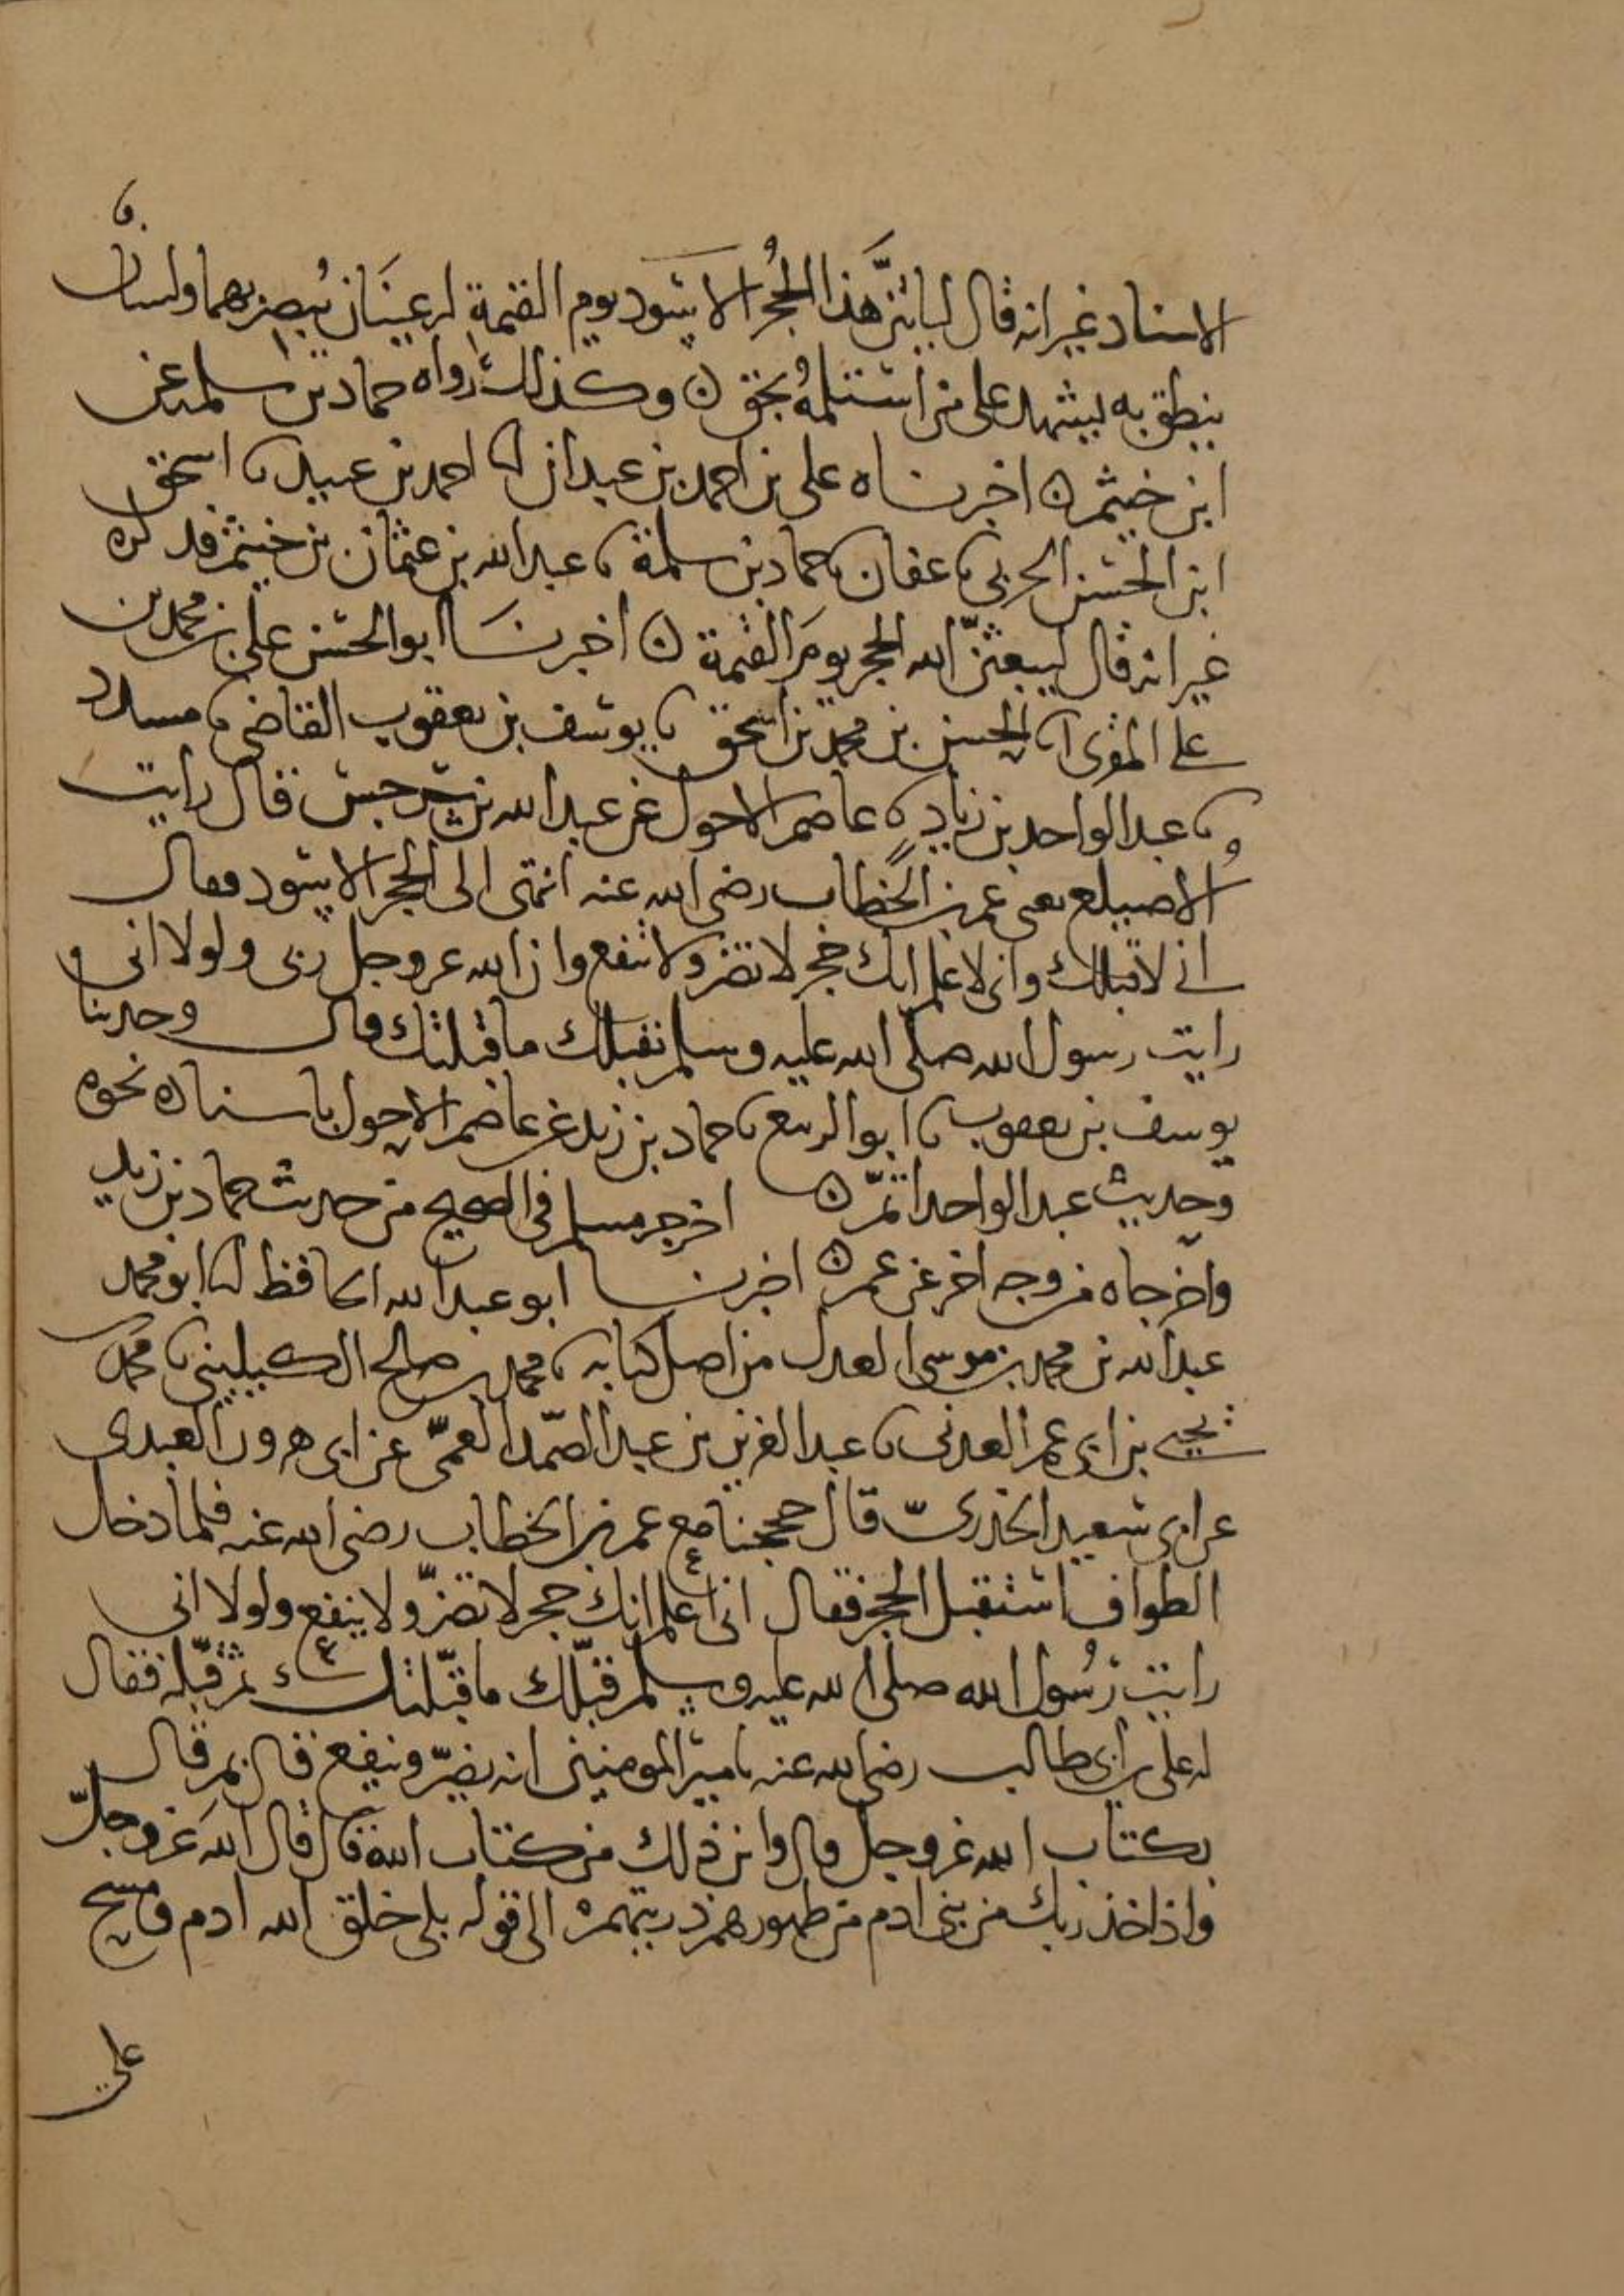 الاسناد غير انه قال لياتينّ هذا الحجرُ الاسود يوم القيمة له عينَان يُبصر بهما ولسان
ينطق به يشهد على من استلمهُ بحق ن وكذلك رواه حماد بن سلمة عن
ابن خيثم ن اخبرناه على بن احمد بن عبدان انا احمد بن عبيد نا اسحق
ابن الحسن الحربى نا عفان نا حماد بن سلمة نا عبد الله بن عثمان بن خيثم فذكره
غير انه قال ليبعثنّ الله الحجر يومَ القيمة ن اخبرنَا ابو الحسن على بن محمد بن
على المقرى انا الحسن بن محمد بن اسحق نا يوسف بن يعقوب القاضى نا مسدد
نا عبد الواحد بن زياد نا عاصم الاحول عن عبد الله بن سرجس قال رايت
الاُصيلع يعنى عمر بن الخطاب رضى الله عنه انتهى الى الحجر الاسود فقال
انى لاقبلك وانى لاعلم انك حجر لا تضر ولا تنفع وان الله عز وجل ربى ولولا انى
رايت رسول الله صلى الله عليه وسلم يقبلك ما قبلتك قال وحدثنا
يوسف بن يعقوب نا ابو الربيع نا حماد بن زيد عن عاصم الاحول باسناده نحوه
وحديث عبد الواحد اتمّ ن اخرجه مسلم فى الصحيح من حديث حماد بن زيد
واخرجاه من وجه اخر عن عمر ن اخبرنا ابو عبد الله الحافظ انا ابو محمد
عبد الله بن محمد بن موسى العدل من اصل كتابه نا محمد بن صالح الكيلينى نا محمد
بن يحيى بن ابى عمر العدنى نا عبد العزيز بن عبد الصّمد العمىّ عن ابى هرون العبدى
عن ابى سعيد الخدرىّ قال حججنا مع عمر بن الخطاب رضى الله عنه فلما دخل
الطواف استقبل الحجر فقال انى اعلم انك حجر لا تضرّ ولا ينفع ولولا انى
رايت رَسُول الله صلى الله عليه وسلم قبّلك ما قبّلتك ثم قبّله فقال
له على بن ابى طالب رضى الله عنه يا مير المومنين انه يضرّ وينفع قال بم قال
بكتاب الله عز وجل قال واين ذلك من كتاب الله قال قال الله عَز وجلّ
واذ اخذ ربك من بنى ادم من ظهورهم ذريتهم الى قوله بلى خلق الله ادم ومسح
على